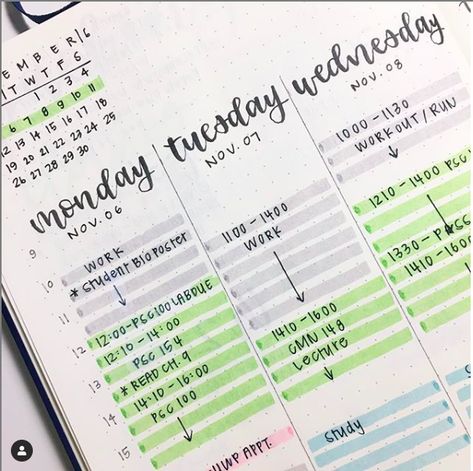 EMBER/6
T W T F S
1 2 3 4
6 7 8 9 10 11
12 13 14 15 16 17 18
19 20 21 22 23 24 25
26 27 28 29 30
monday
NOV. 06
9
10
11
12
13
14
15
WORK
* Student Bio Poster
12:00-PSC 100 LAB DUE
12:10-14:00
PSC 154
* READ CH. 9
14:10-16:00
PSC 100
tuesday
NOV. 07
1100-1400
WORK
1410-1600
CMN 148
Lecture
APPT.
wednesday
NOV. 08
1000-1130
WORKOUT/RUN
1210-1400 PSC
1330-
1410-160
Study